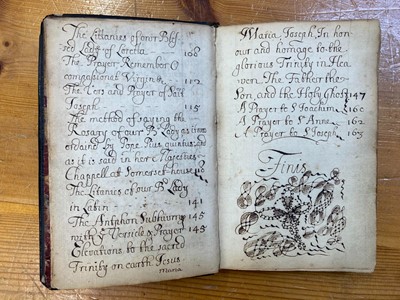 The Littanies of our Bles
sed Lady of Loretta 108
The Prayer Remember O
compassionat Virgin 112
The and Prayer of Saît
Joseph 115
The method of saying the
Rosary of our B: Lady as it was
ordaind by Pope Pius quintus; and
as it is said in her Majesties
Chappell at Somerset-house 118
The Litanies of our B: Lady
in Latin 141
The Antiphon Subtuum
with ye Versicle & Prayer 145
Elevations to the sacred
Trinity on earth Jesus
Maria
Maria, Joseph, In hon
our and homage to the
glorious Trinity in Hea
ven. The Father the
Son, and the Holy Ghost 147
A Prayer to St Joachim 160
A Prayer to St Anne 162
A Prayer to St Joseph 165
Finis